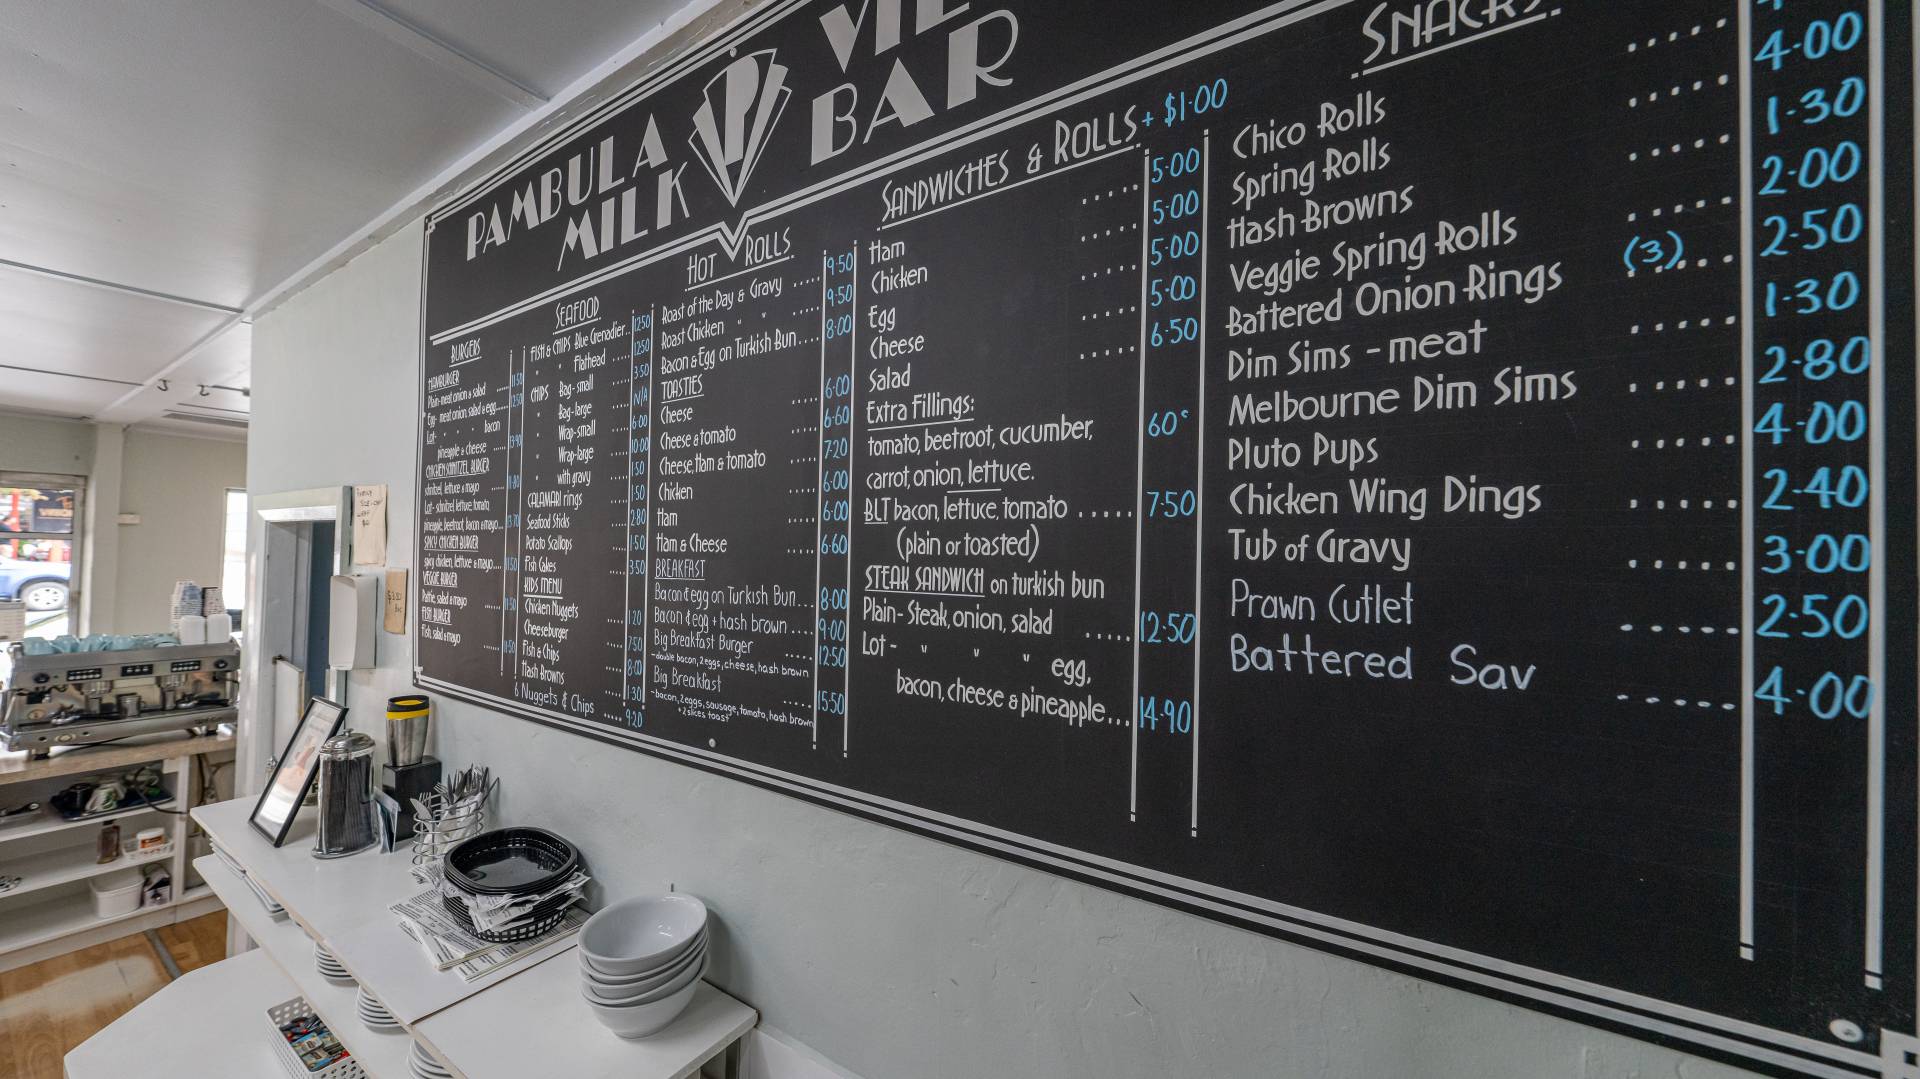 PAMBULA
MILK
P
BAR
BURGERS
HAMBURGER
Plain-meat, onion & salad ...... 11·50
Egg- meat, onion, salad & egg ...... 12·50
Lot- " " " bacon
pineapple & cheese ...... 13·90
CHICKEN SCHNITZEL BURGER
schnitzel, lettuce & mayo ...... 11·80
Lot-schnitzel, lettuce, tomato,
pineapple, beetroot, bacon & mayo...
SPICY CHICKEN BURGER
spicy chicken, lettuce & mayo....
VEGGIE BURGER
Pattie, salad & mayo ......
FISH BURGER
Fish, salad & mayo ......
SEAFOOD
FISH & CHIPS Blue Grenadier.. 12·50
" " Flathead ..... 12·50
CHIPS Bag-small ..... 3·50
" Bag-large ..... N/A
" Wrap-small ..... 6·00
" Wrap-large ..... 10·00
" with gravy ..... 1·50
CALAMARI rings ..... 1·50
Seafood Sticks ..... 2·80
Potato Scallops ..... 1·50
Fish Cakes ..... 3·50
KIDS MENU
Chicken Nuggets ..... 1·20
Cheeseburger ..... 7·50
Fish & Chips ..... 8·00
Hash Browns ..... 1·30
6 Nuggets & Chips ..... 9·20
HOT ROLLS
Roast of the Day & Gravy ..... 9·50
Roast Chicken " " 9·50
Bacon & Egg on Turkish Bun.... 8·00
TOASTIES
Cheese ..... 6·00
Cheese & tomato ..... 6·60
Cheese, Ham & tomato ..... 7·20
Chicken ..... 6·00
Ham ..... 6·00
Ham & Cheese ..... 6·60
BREAKFAST
Bacon & egg on Turkish Bun... 8·00
Bacon & egg + hash brown .... 9·00
Big Breakfast Burger ..... 12·50
-double bacon, 2 eggs, cheese, hash brown
Big Breakfast ..... 15·50
-bacon, 2 eggs, sausage, tomato, hash brown
+ 2 slices toast
SANDWICHES & ROLLS + $1·00
Ham ..... 5·00
Chicken ..... 5·00
Egg ..... 5·00
Cheese ..... 5·00
Salad ..... 6·50
Extra Fillings:
tomato, beetroot, cucumber, 60c
carrot, onion, lettuce.
BLT bacon, lettuce, tomato ..... 7·50
(plain or toasted)
STEAK SANDWICH on turkish bun
Plain- Steak, onion, salad ..... 12·50
Lot - " " " egg,
bacon, cheese & pineapple... 14·90
SNACKS
Chico Rolls ..... 4·00
Spring Rolls ..... 1·30
Hash Browns ..... 2·00
Veggie Spring Rolls (3) ..... 2·50
Battered Onion Rings ..... 1·30
Dim Sims - meat ..... 2·80
Melbourne Dim Sims ..... 4·00
Pluto Pups ..... 2·40
Chicken Wing Dings ..... 3·00
Tub of Gravy ..... 2·50
Prawn Cutlet ..... 4·00
Battered Sav